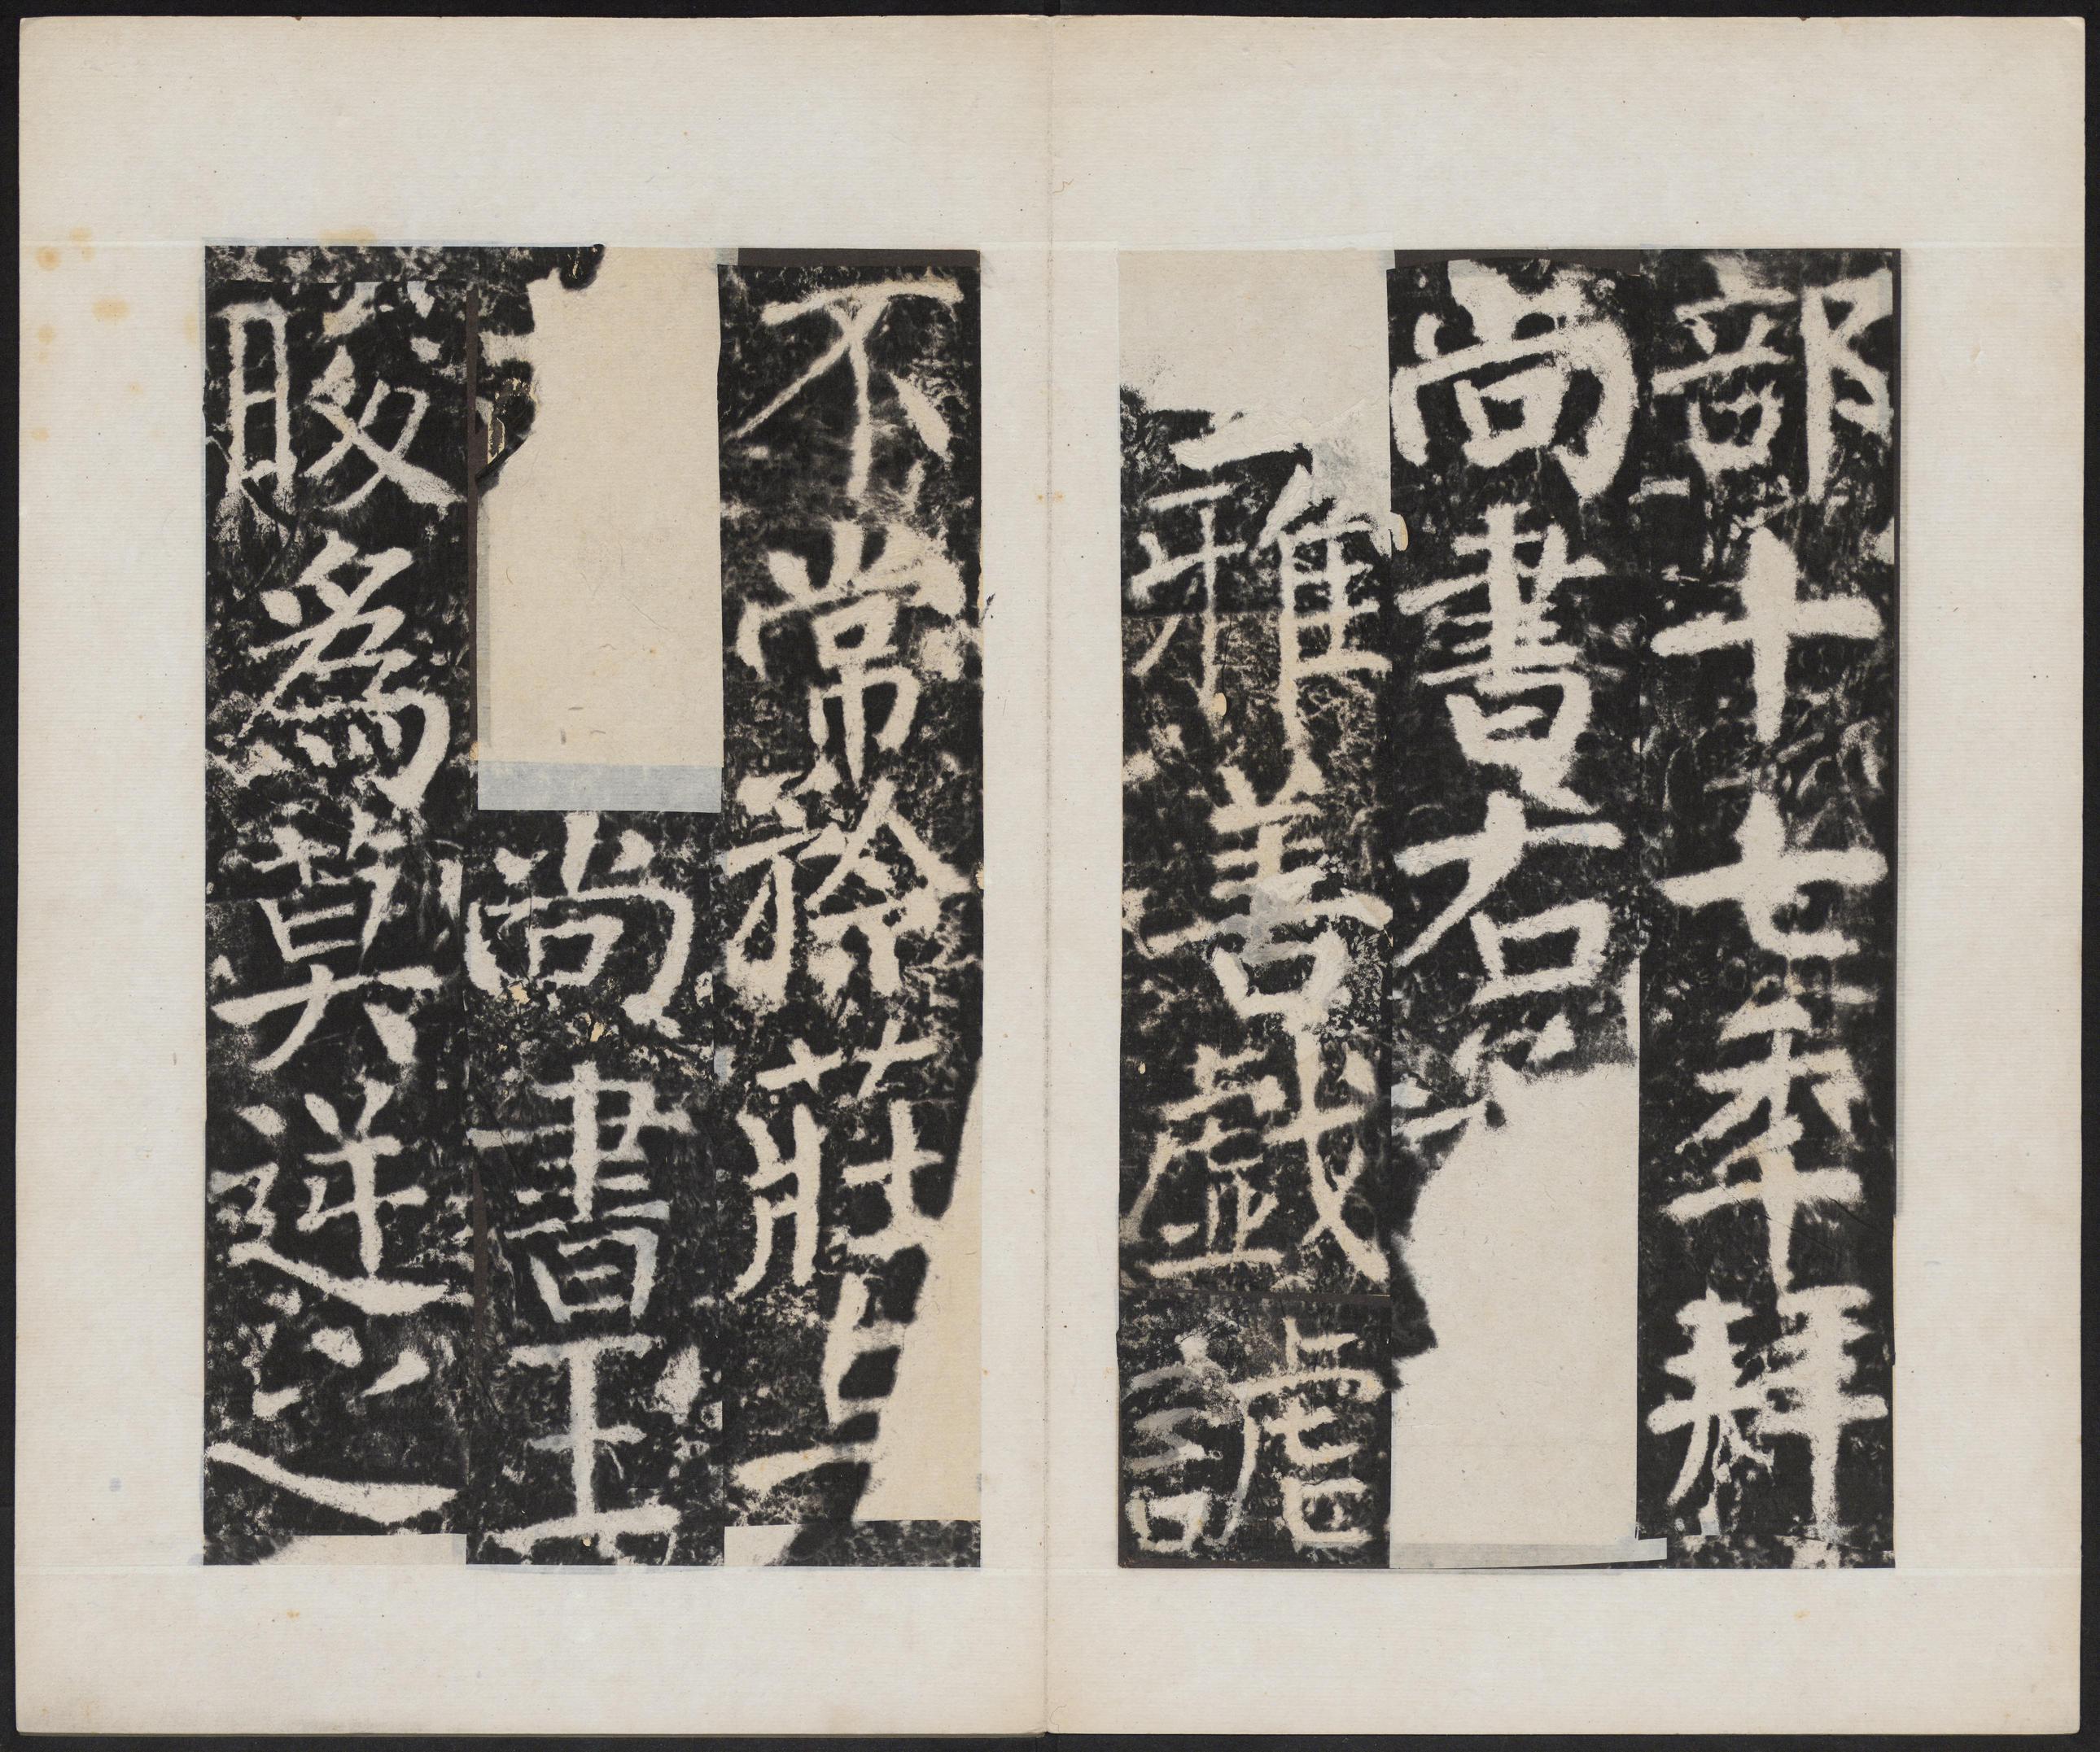 部十七年拜
尚書右
雅善戲謔
不常矜莊
尚書王
晙爲莫逆之